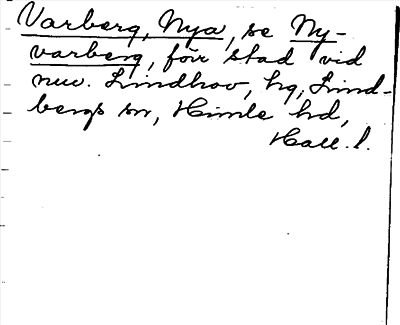 Varberg, Nya, se Ny-
varberg, förr stad vid
nuv. Lindhov, hg, Lind-
bergs sn, Himle hd,
Hall. l.